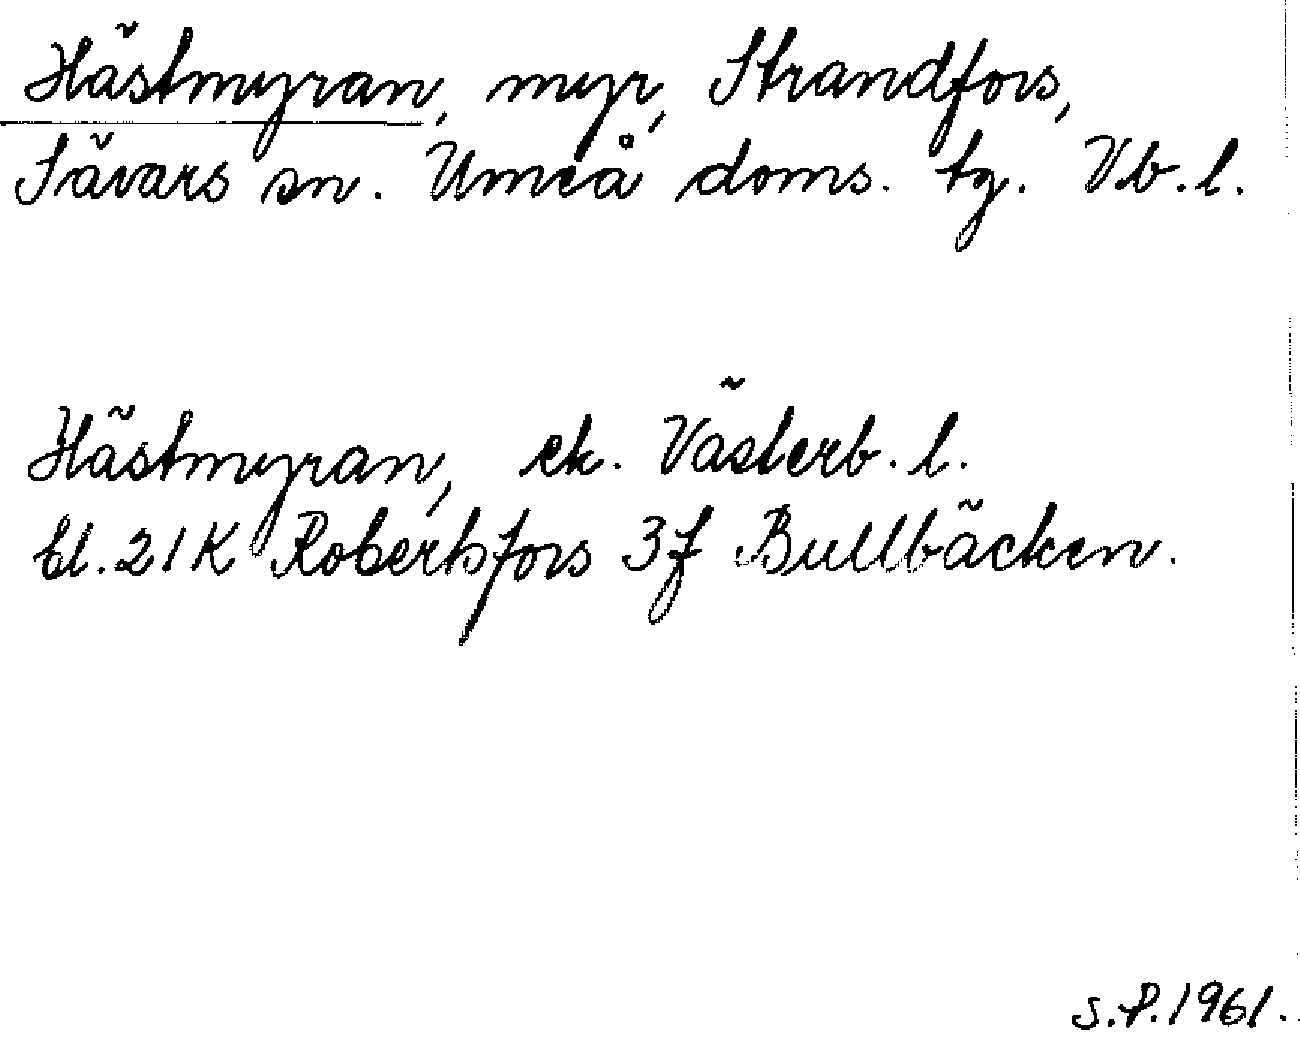 Hästmyran, myr, Strandfors,
Sävars sn. Umeå doms. tg. Vb. l.
Hästmyran, ek. Västerb. l.
bl. 21K Robertsfors 3f Bullbäcken.
S.P. 1961.